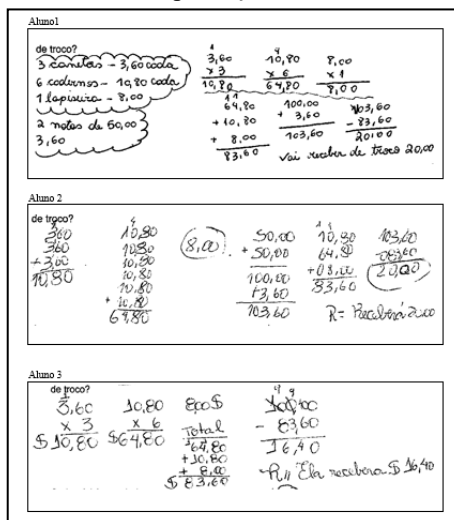 Aluno1
de troco?
3 canetas - 3,60 cada
6 cadernos - 10,80 cada
1 lapiseira - 8,00
2 notas de 50,00
3,60
1
3,60
x 3
10,80
4
10,80
x 6
64,80
8,00
x 1
8,00
1 1
64,80
+ 10,80
+ 8,00
83,60
100,00
+ 3,60
103,60
103,60
- 83,60
20,00
vai receber de troco 20,00
Aluno 2
de troco?
360
360
+3,60
10,80
4
10,80
10,80
10,80
10,80
10,80
+ 10,80
64,80
8,00
50,00
+ 50,00
100,00
+3,60
103,60
1 1
10,80
64,80
+08,00
83,60
103,60
20,00
R= Receberá
Aluno 3
de troco?
1
3,60
x 3
$ 10,80
10,80
x 6
$64,80
800$
Total
64,80
+10,80
+ 8,00
$ 83,60
9 9
100,00
- 83,60
16,40
R// Ela recebera $ 16,40